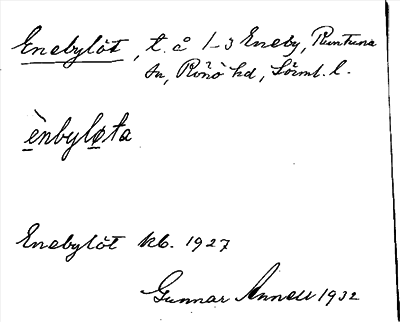 Enebylöt, t. å 1-3 Eneby, Runtuna
sn, Rönö hd, Sörml. l.
ènbyløta
Enebylöt kb. 1927
Gunnar Annell 1932